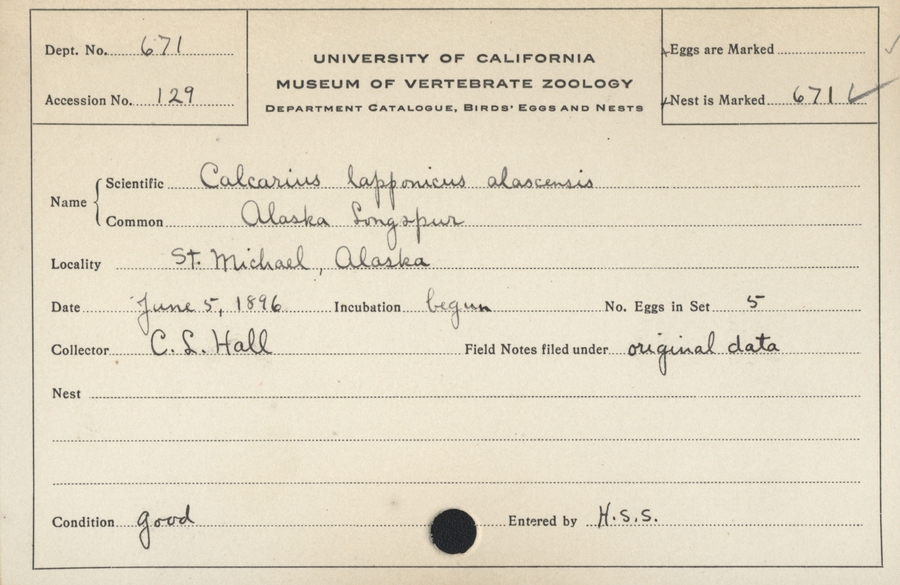 Dept. No. 671
UNIVERSITY OF CALIFORNIA
MUSEUM OF VERTEBRATE ZOOLOGY
DEPARTMENT CATALOGUE, BIRDS' EGGS AND NESTS
Accession No. 129
Eggs are Marked
Nest is Marked 671 ✓
Name { Scientific Calcarius lapponicus alascensis
Common Alaska Longspur
Locality St. Michael, Alaska
Date June 5, 1896 Incubation begun No. Eggs in Set 5
Collector C. L. Hall Field Notes filed under original data
Nest
Condition good Entered by H.S.S.